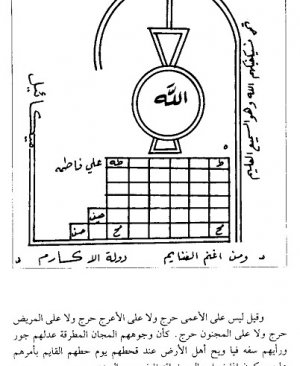 فسيكفيكهم الله وهو السميع العليم
الله
علي فاطمه طه ط
مح مح
ومن اغتنم الغنايم دولة الاكارم د
وقيل ليس على الأعمى حرج ولا على الأعرج حرج ولا على المريض
حرج ولا على المجنون حرج . كأن وجوههم المجان المطرقة عدلهم جور
ورأيهم سفه فيا ويح أهل الأرض عند قحطهم يوم حطهم القايم بأمرهم